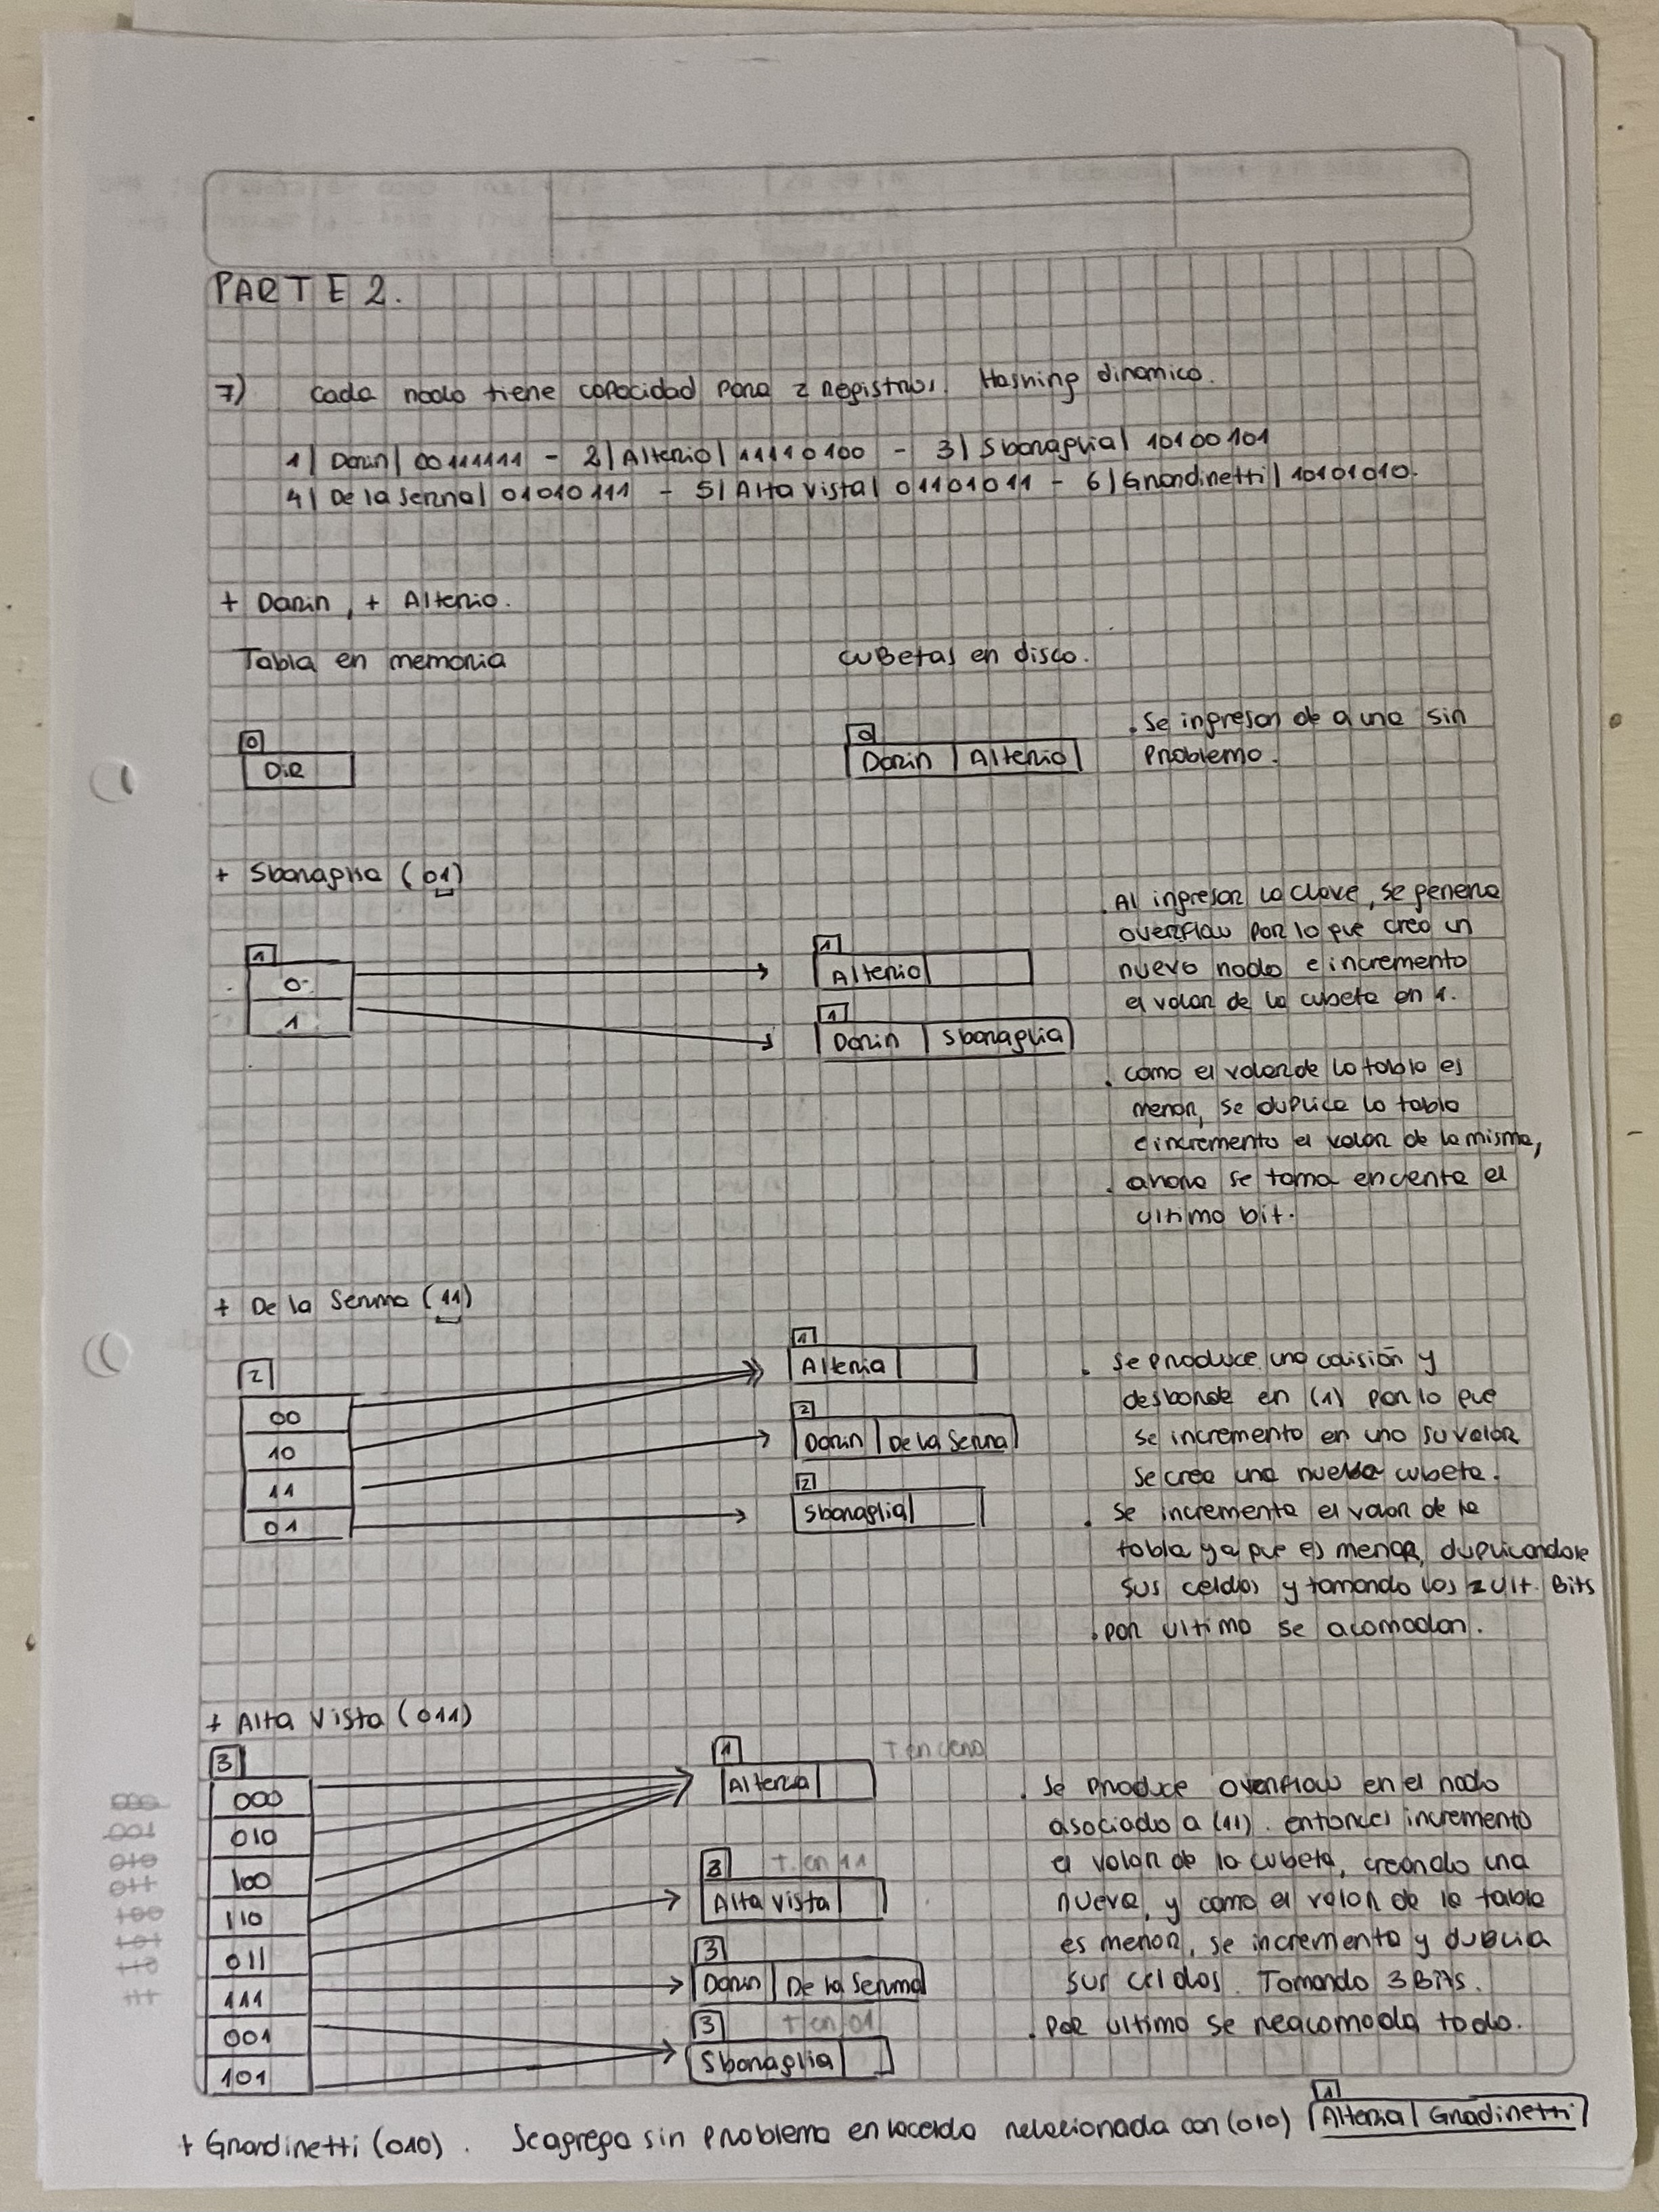 PARTE 2.
7) Cada nodo tiene capacidad para 2 registros. Hashing dinamico.
1| Darin| 00111111 - 2| Alterio| 11110100 - 3| Sbaraglia| 10100101
4| De la Serna| 01010111 - 5| Alta Vista| 01101011 - 6| Grandinetti| 10101010.
+ Darin, + Alterio.
Tabla en memoria
cubetas en disco.
0
Dir
0
Darin | Alterio
. Se ingresan de a una sin
problema.
+ Sbaraglia (01)
1
0
1
1
Alterio
1
Darin | Sbaraglia
. Al ingresar la clave, se genera
overflow por lo que creo un
nuevo nodo e incremento
el valor de la cubeta en 1.
. como el valor de la tabla es
menor, se duplica la tabla
e incremento el valor de la misma,
. ahora se toma encuenta el
ultimo bit.
+ De la Serna (11)
2
00
10
11
01
1
Alteria
2
Darin | De la Serna
2
Sbaraglia
. se produce una colisión y
desborde en (1) por lo que
se incremento en uno su valor
se crea una nueva cubeta.
. se incrementa el valor de la
tabla ya que es menor, duplicandose
sus celdas y tomando los 2 ult. Bits
. por ultimo se acomodan.
+ Alta Vista (011)
3
000
010
100
110
011
111
001
101
000
001
010
011
100
101
110
111
1
Alteria
3
T. en 11
Alta Vista
3
Darin | De la Serna
3
T en 01
Sbaraglia
. Se produce overflow en el nodo
asociado a (11). entonces incremento
el valor de la cubeta, creando una
nueva, y como el valor de la tabla
es menor, se incrementa y dublica
sus celdas. Tomando 3 Bits.
. por ultimo se reacomoda todo.
+ Grandinetti (010). Se agrega sin problema en la celda relacionada con (010)
1
Alteria | Gradinetti